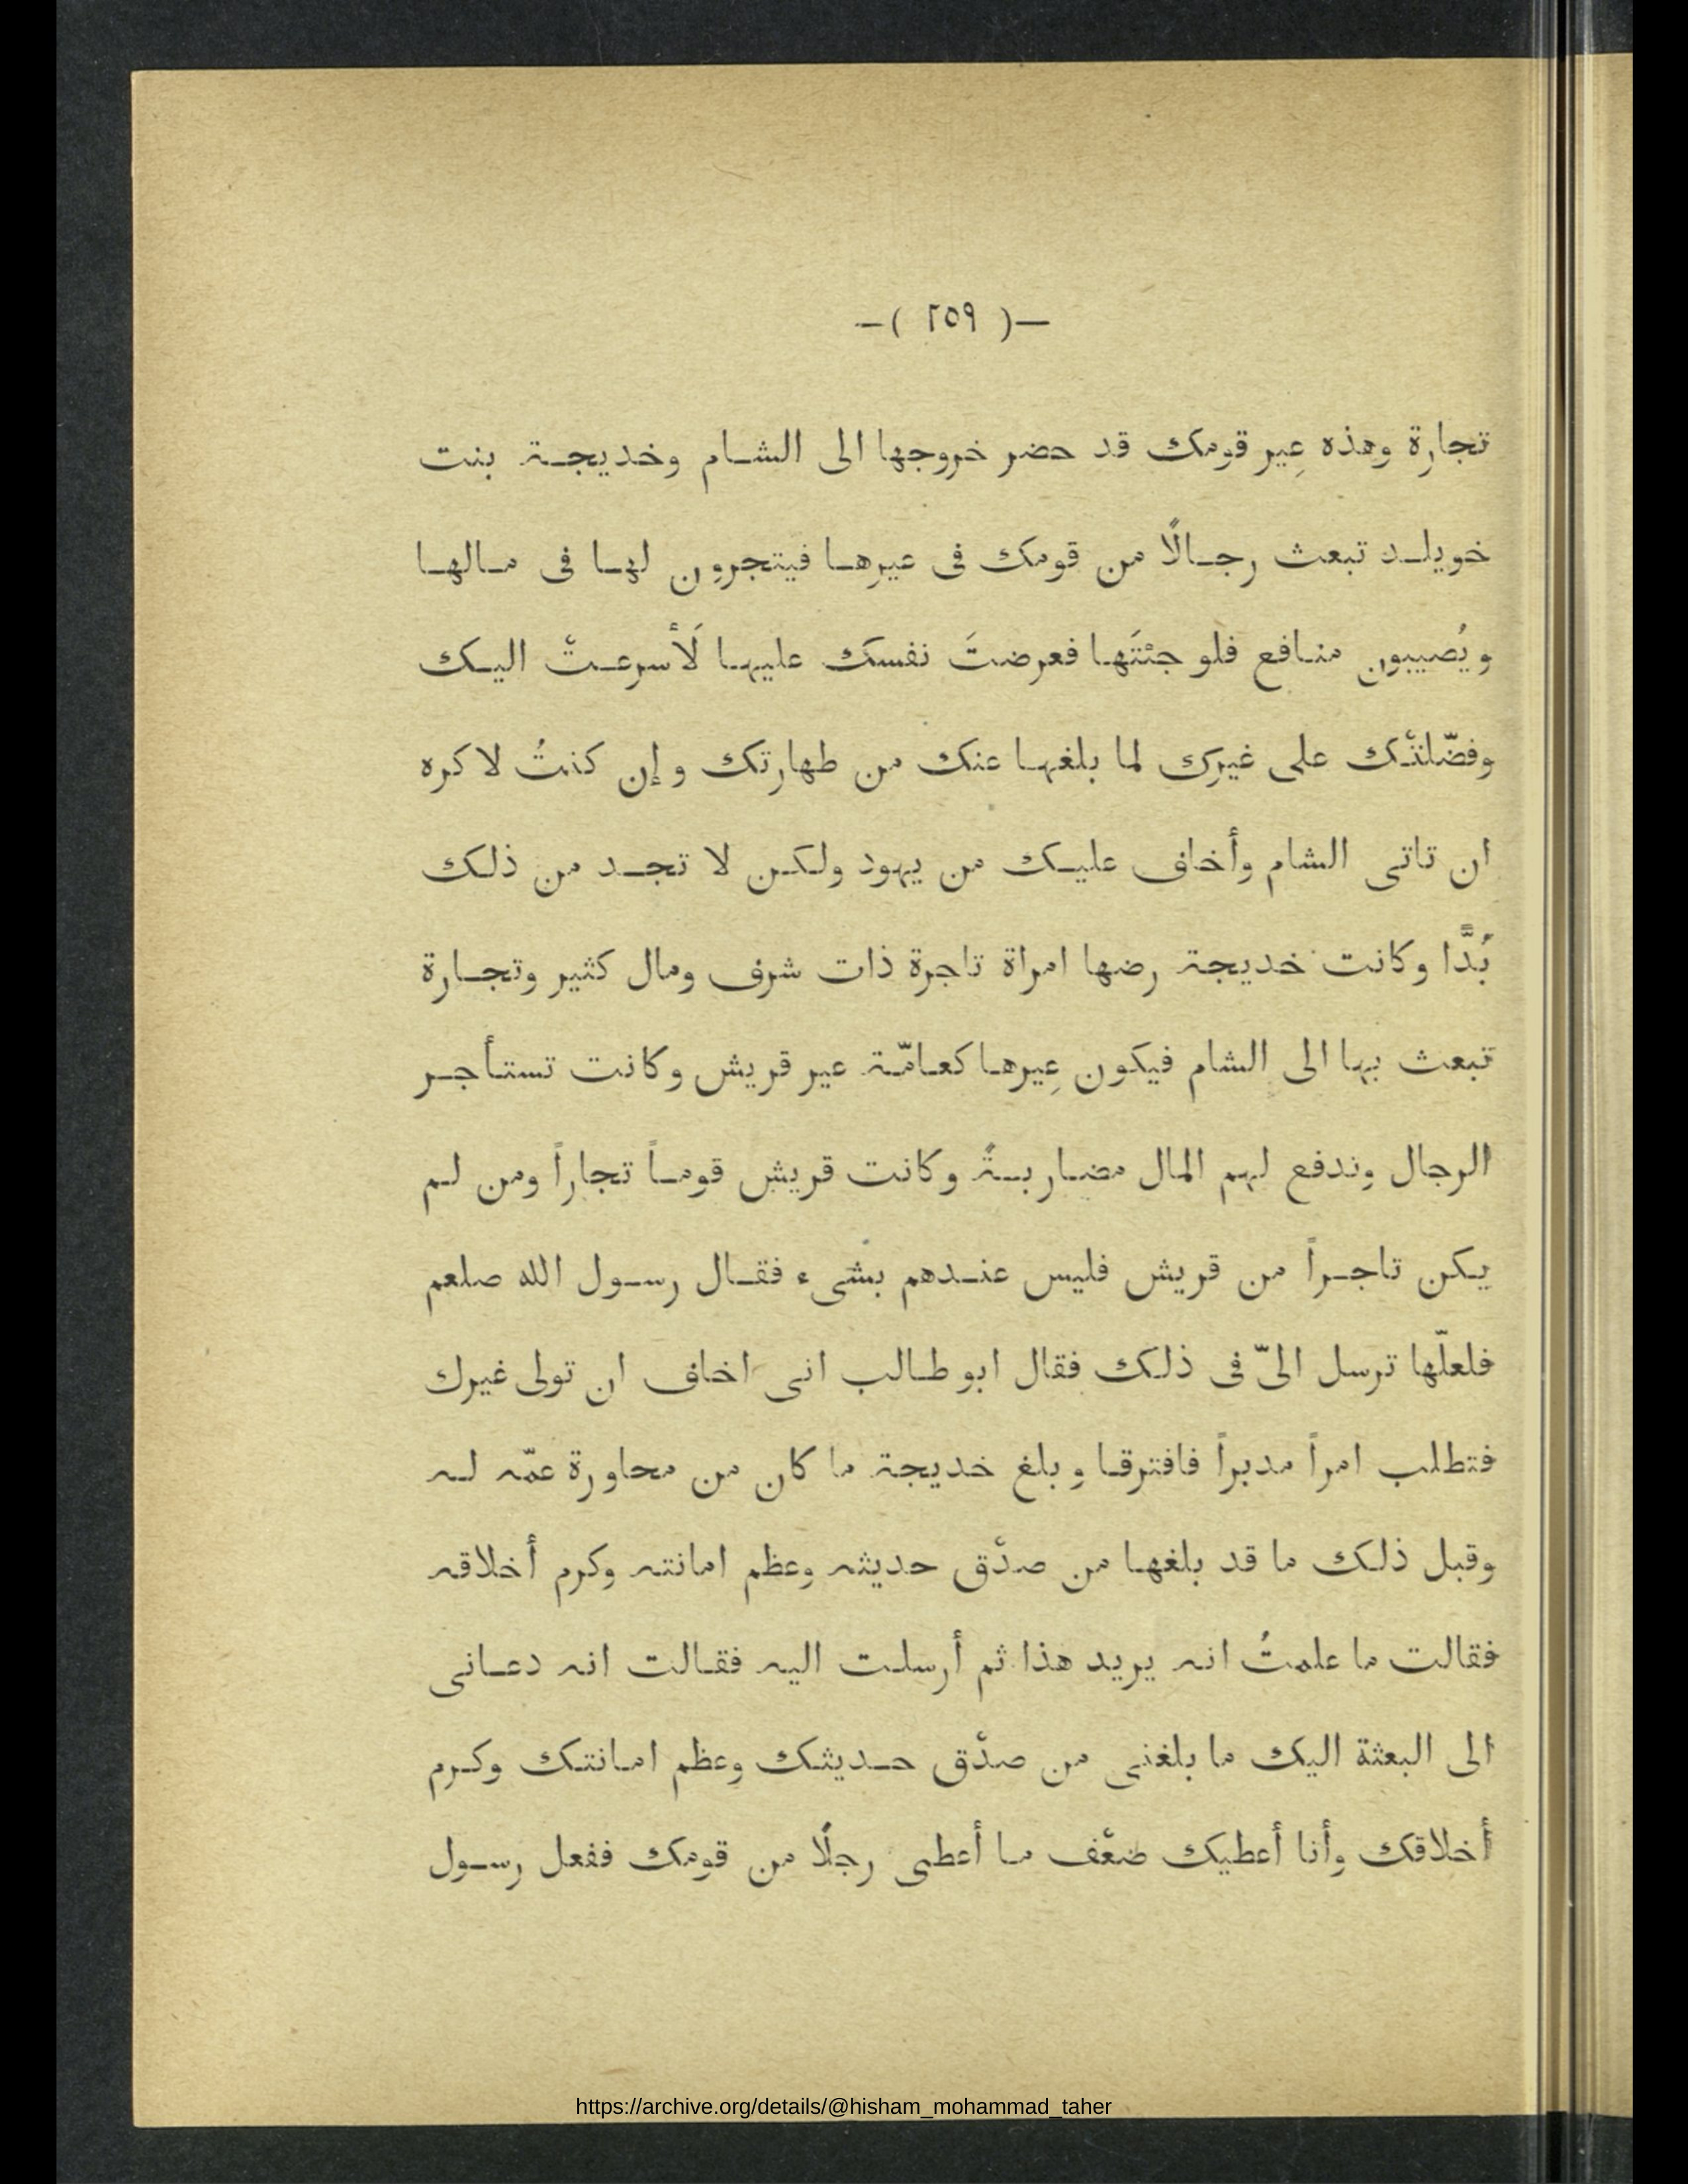 —( ٢٥٩ )—
تجارة وهذه عِير قومك قد حضر خروجها الى الشام وخديجة بنت
خويلد تبعث رجالًا من قومك فى عيرها فيتجرون لها فى مالها
ويُصيبون منافع فلو جئتَها فعرضتَ نفسك عليها لَأسرعتْ اليك
وفضّلتْك على غيرك لما بلغها عنك من طهارتك وإن كنتُ لاكره
ان تاتى الشام وأخاف عليك من يهود ولكن لا تجد من ذلك
بُدًّا وكانت خديجة رضها امراة تاجرة ذات شرف ومال كثير وتجارة
تبعث بها الى الشام فيكون عِيرها كعامّة عير قريش وكانت تستأجر
الرجال وتدفع لهم المال مضاربةً وكانت قريش قوماً تجاراً ومن لم
يكن تاجراً من قريش فليس عندهم بشىء فقال رسول الله صلعم
فلعلّها ترسل الىّ فى ذلك فقال ابو طالب انى اخاف ان تولى غيرك
فتطلب امراً مدبراً فافترقا وبلغ خديجة ما كان من محاورة عمّه له
وقبل ذلك ما قد بلغها من صدْق حديثه وعظم امانته وكرم أخلاقه
فقالت ما علمتُ انه يريد هذا ثم أرسلت اليه فقالت انه دعانى
الى البعثة اليك ما بلغنى من صدْق حديثك وعظم امانتك وكرم
أخلاقك وأنا أعطيك ضعْف ما أعطى رجلًا من قومك ففعل رسول
https://archive.org/details/@hisham_mohammad_taher